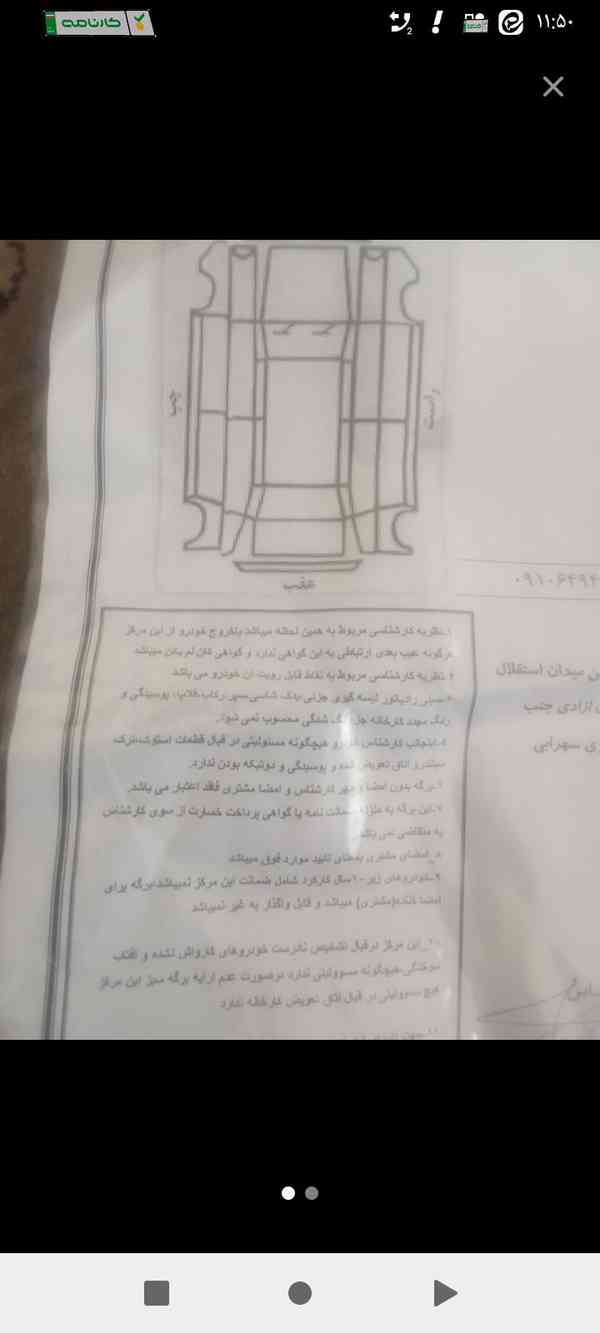 ۱۱:۵۰
کارنامه
2
چپ
راست
عقب
۰۹۱۰۶۴۹۴
۱.نظریه کارشناسی مربوط به همین لحظه میباشد باخروج خودرو از این مرکز
هرگونه عیب بعدی ارتباطی به این گواهی ندارد و گواهی کان لم یکن میباشد
۲.نظریه کارشناسی مربوط به نقاط قابل رویت ان خودرو می باشد
سینی رادیاتور لیسه گیری جزئی پدک شاسی سپر رکاب پوسیدگی و
رنگ مجدد کارخانه جز رنگ شدگی محسوب نمی شود.
اینجانب کارشناس خودرو هیچگونه مسئولیتی در قبال قطعات استوک،ترک
سیلندرو اتاق تعویض شده و پوسیدگی و دوتیکه بودن ندارد.
برگه بدون امضا و مهر کارشناس و امضا مشتری فاقد اعتبار می باشد.
۷.این برگه به منزله ضمانت نامه یا گواهی پرداخت خسارت از سوی کارشناس
به متقاضی نمی باشد
۸.امضای مشتری بمعنای تایید موارد فوق میباشد
۹.خودروهای زیر ۱۰سال کارکرد شامل ضمانت این مرکز نمیباشد/برگه برای
امضا کننده(مشتری) میباشد و قابل واگذار به غیر نمیباشد
۱۰_این مرکز درقبال تشخیص نادرست خودروهای کارواش نشده و آفتاب
سوختگی هیچگونه مسوولیتی ندارد درصورت عدم ارایه برگه سبز این مرکز
هیچ مسوولیتی در قبال اتاق تعویض کارخانه ندارد
ن میدان استقلال
ازادی جنب
ی سهرابی